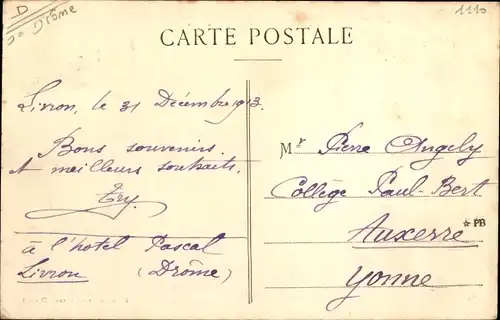 D
Drôme
1110
CARTE POSTALE
Livron, le 31 Décembre 1913.
Bons souvenirs.
et meilleurs souhaits.
Try
à l'hotel Pascal
Livron (Drôme)
Mr Pierre Angely
Collège Paul-Bert
☆PB
Auxerre
Yonne